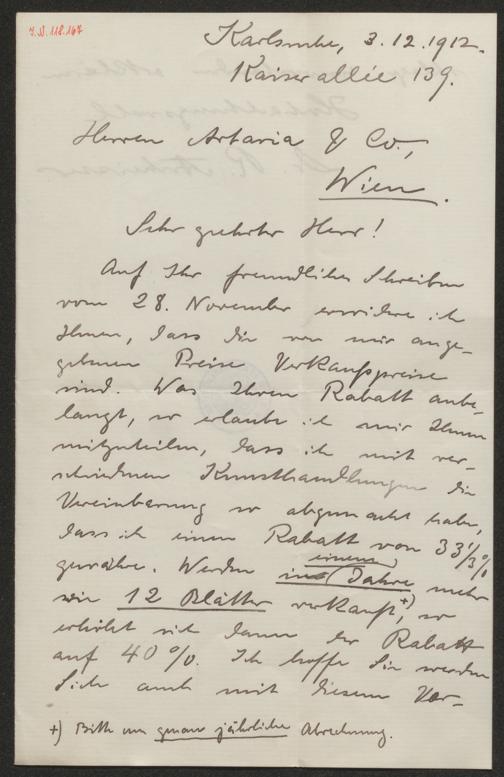 J.N. 118.167
Karlsruhe, 3.12.1912.
Kaiserallée 139.
Herren Artaria & Co.,
Wien.
Sehr geehrter Herr!
Auf Ihr freundliches Schreiben
vom 28. November erwidere ich
Ihnen, dass die von mir ange-
gebenen Preise Verkaufspreise
sind. Was Ihren Rabatt anbe-
langt, so erlaube ich mir Ihnen
mitzuteilen, dass ich mit ver-
schiedenen Kunsthandlungen die
Vereinbarung so abgemacht habe,
dass ich einen Rabatt von 33 1/3 %
gewähre. Werden in einem Jahre mehr
wie 12 Blätter verkauft +), so
erhöht sich dann der Rabatt
auf 40 %. Ich hoffe Sie werden
Sich auch mit diesem Vor-
+) Bitte um genaue jährliche Abrechnung.